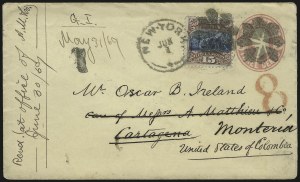 G. I.
May 31/69
1
NEW-YORK
JUN
1
15
8
Mr. Oscar B. Ireland
Care of Messrs A. Matthieu &
Cartagena Monteria
United States of Colombia
Recd (at office of
June 30/69